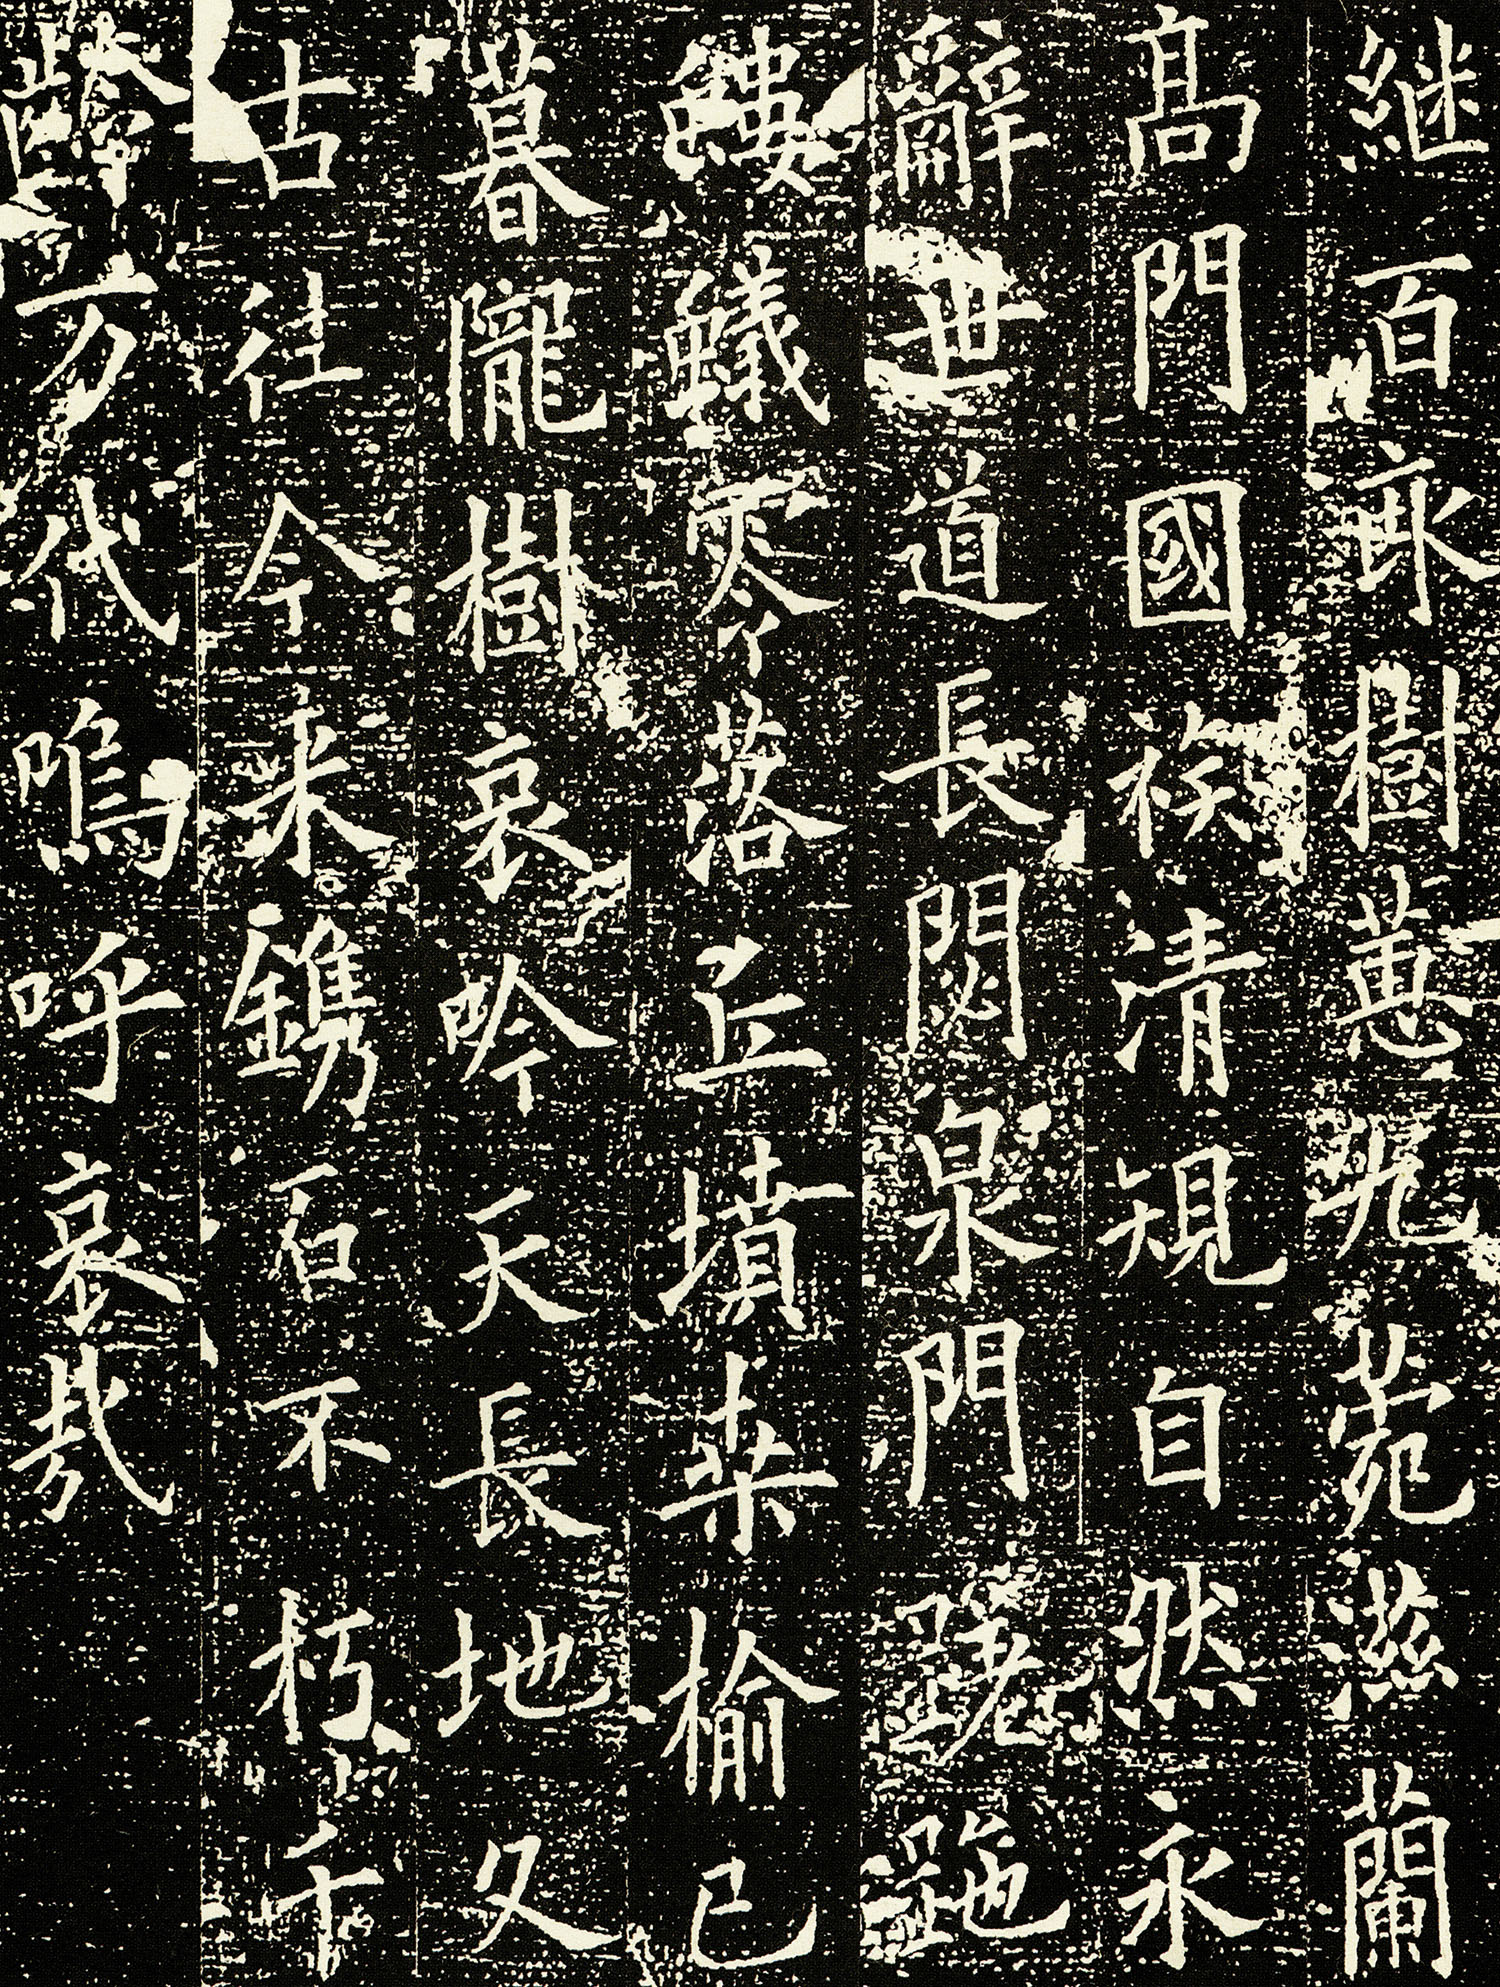 継百畝樹蕙菀滋蘭
高門國祑清規自然永
辭世道長閟泉門蹉跎
螻蟻零落丘墳桑榆已
暮隴樹哀吟天長地久
古往今来鐫百不朽千
齡万代嗚呼哀哉